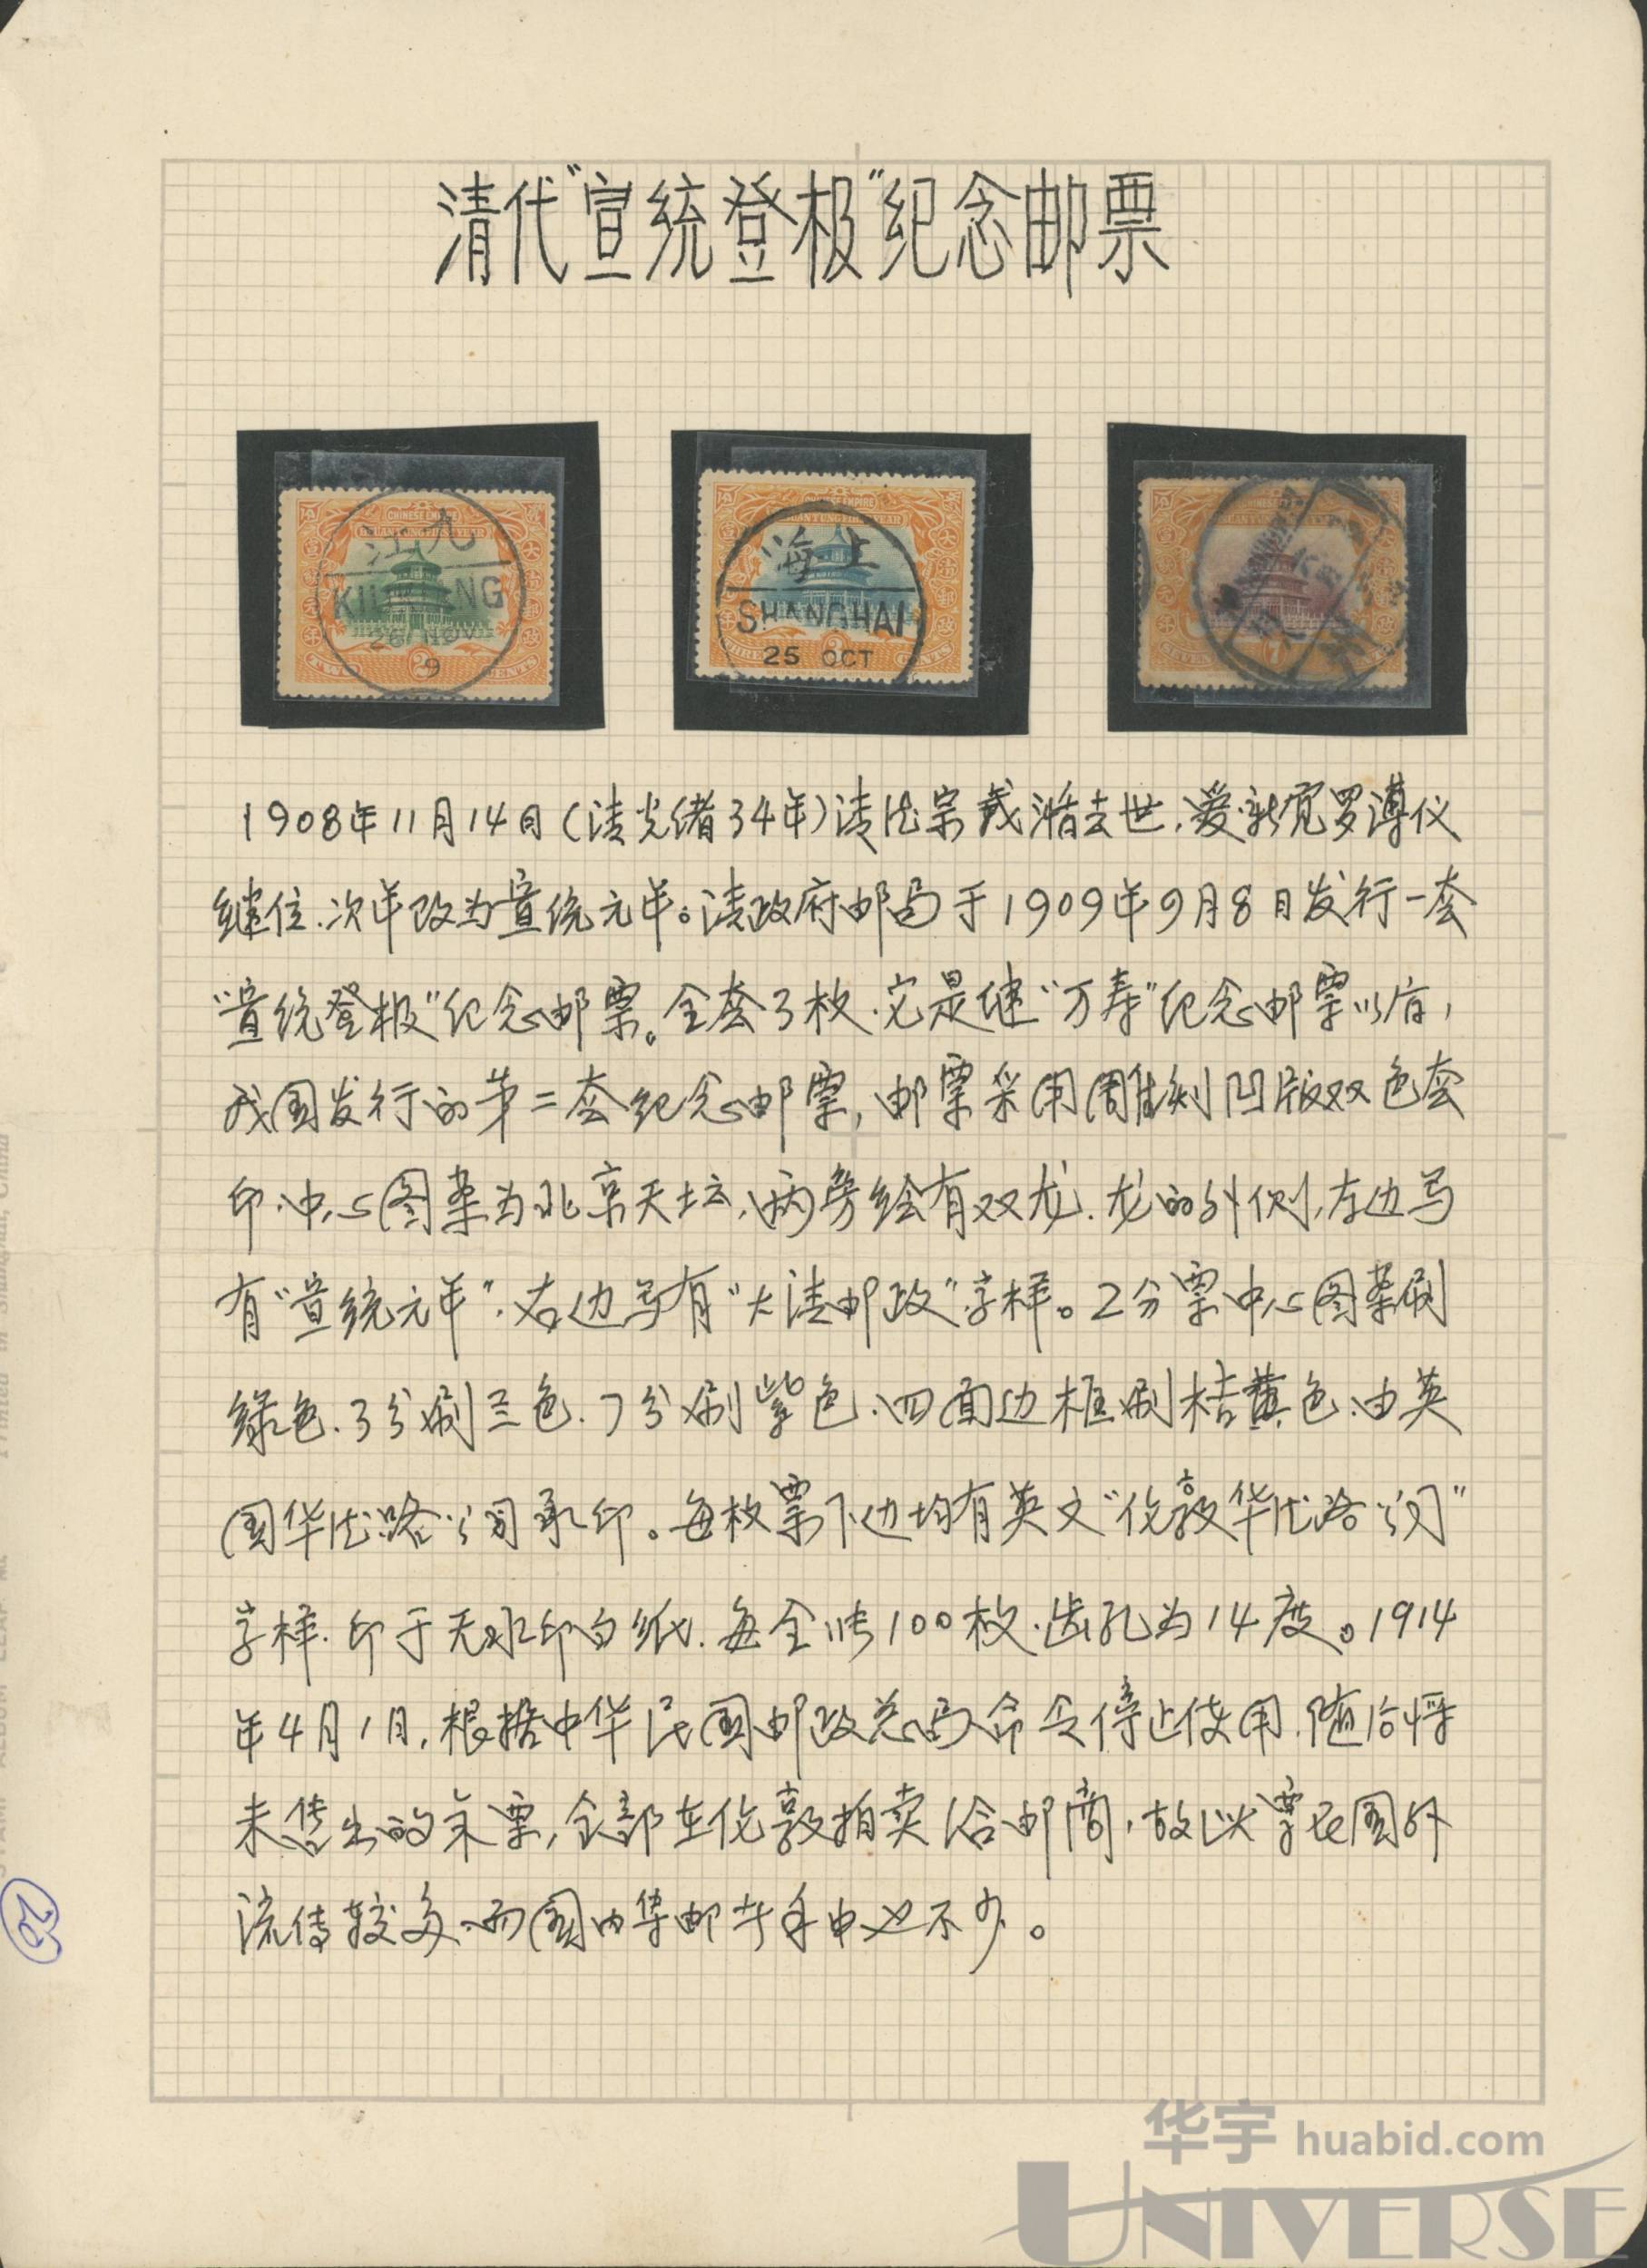 清代"宣统登极"纪念邮票
CHINESE EMPIRE
九江
KIUKIANG
26 NOV
9
TWO
2
CENTS
CHINESE EMPIRE
上海
SHANGHAI
25 OCT
THREE
CENTS
7
1908年11月14日(清光绪34年)清德宗载湉去世,爱新觉罗溥仪
继位.次年改为宣统元年。清政府邮局于1909年9月8日发行一套
"宣统登极"纪念邮票。全套3枚.它是继"万寿"纪念邮票以后,
我国发行的第二套纪念邮票,邮票采用雕刻凹版双色套
印.中心图案为北京天坛,两旁绘有双龙.龙的外侧,左边写
有"宣统元年",右边写有"大清邮政"字样。2分票中心图案刷
绿色.3分刷兰色.7分刷紫色、四面边框刷桔黄色.由英
国华德路公司承印。每枚票下边均有英文"伦敦华德路公司"
字样.印于无水印白纸.每全张100枚.齿孔为14度。1914
年4月1日,根据中华民国邮政总局命令停止使用.随后将
未售出的余票,全部在伦敦拍卖给邮商,故以票在国外
流传较多、而国内集邮者手中也不少。
25
华宇 huabid.com
UNIVERSE